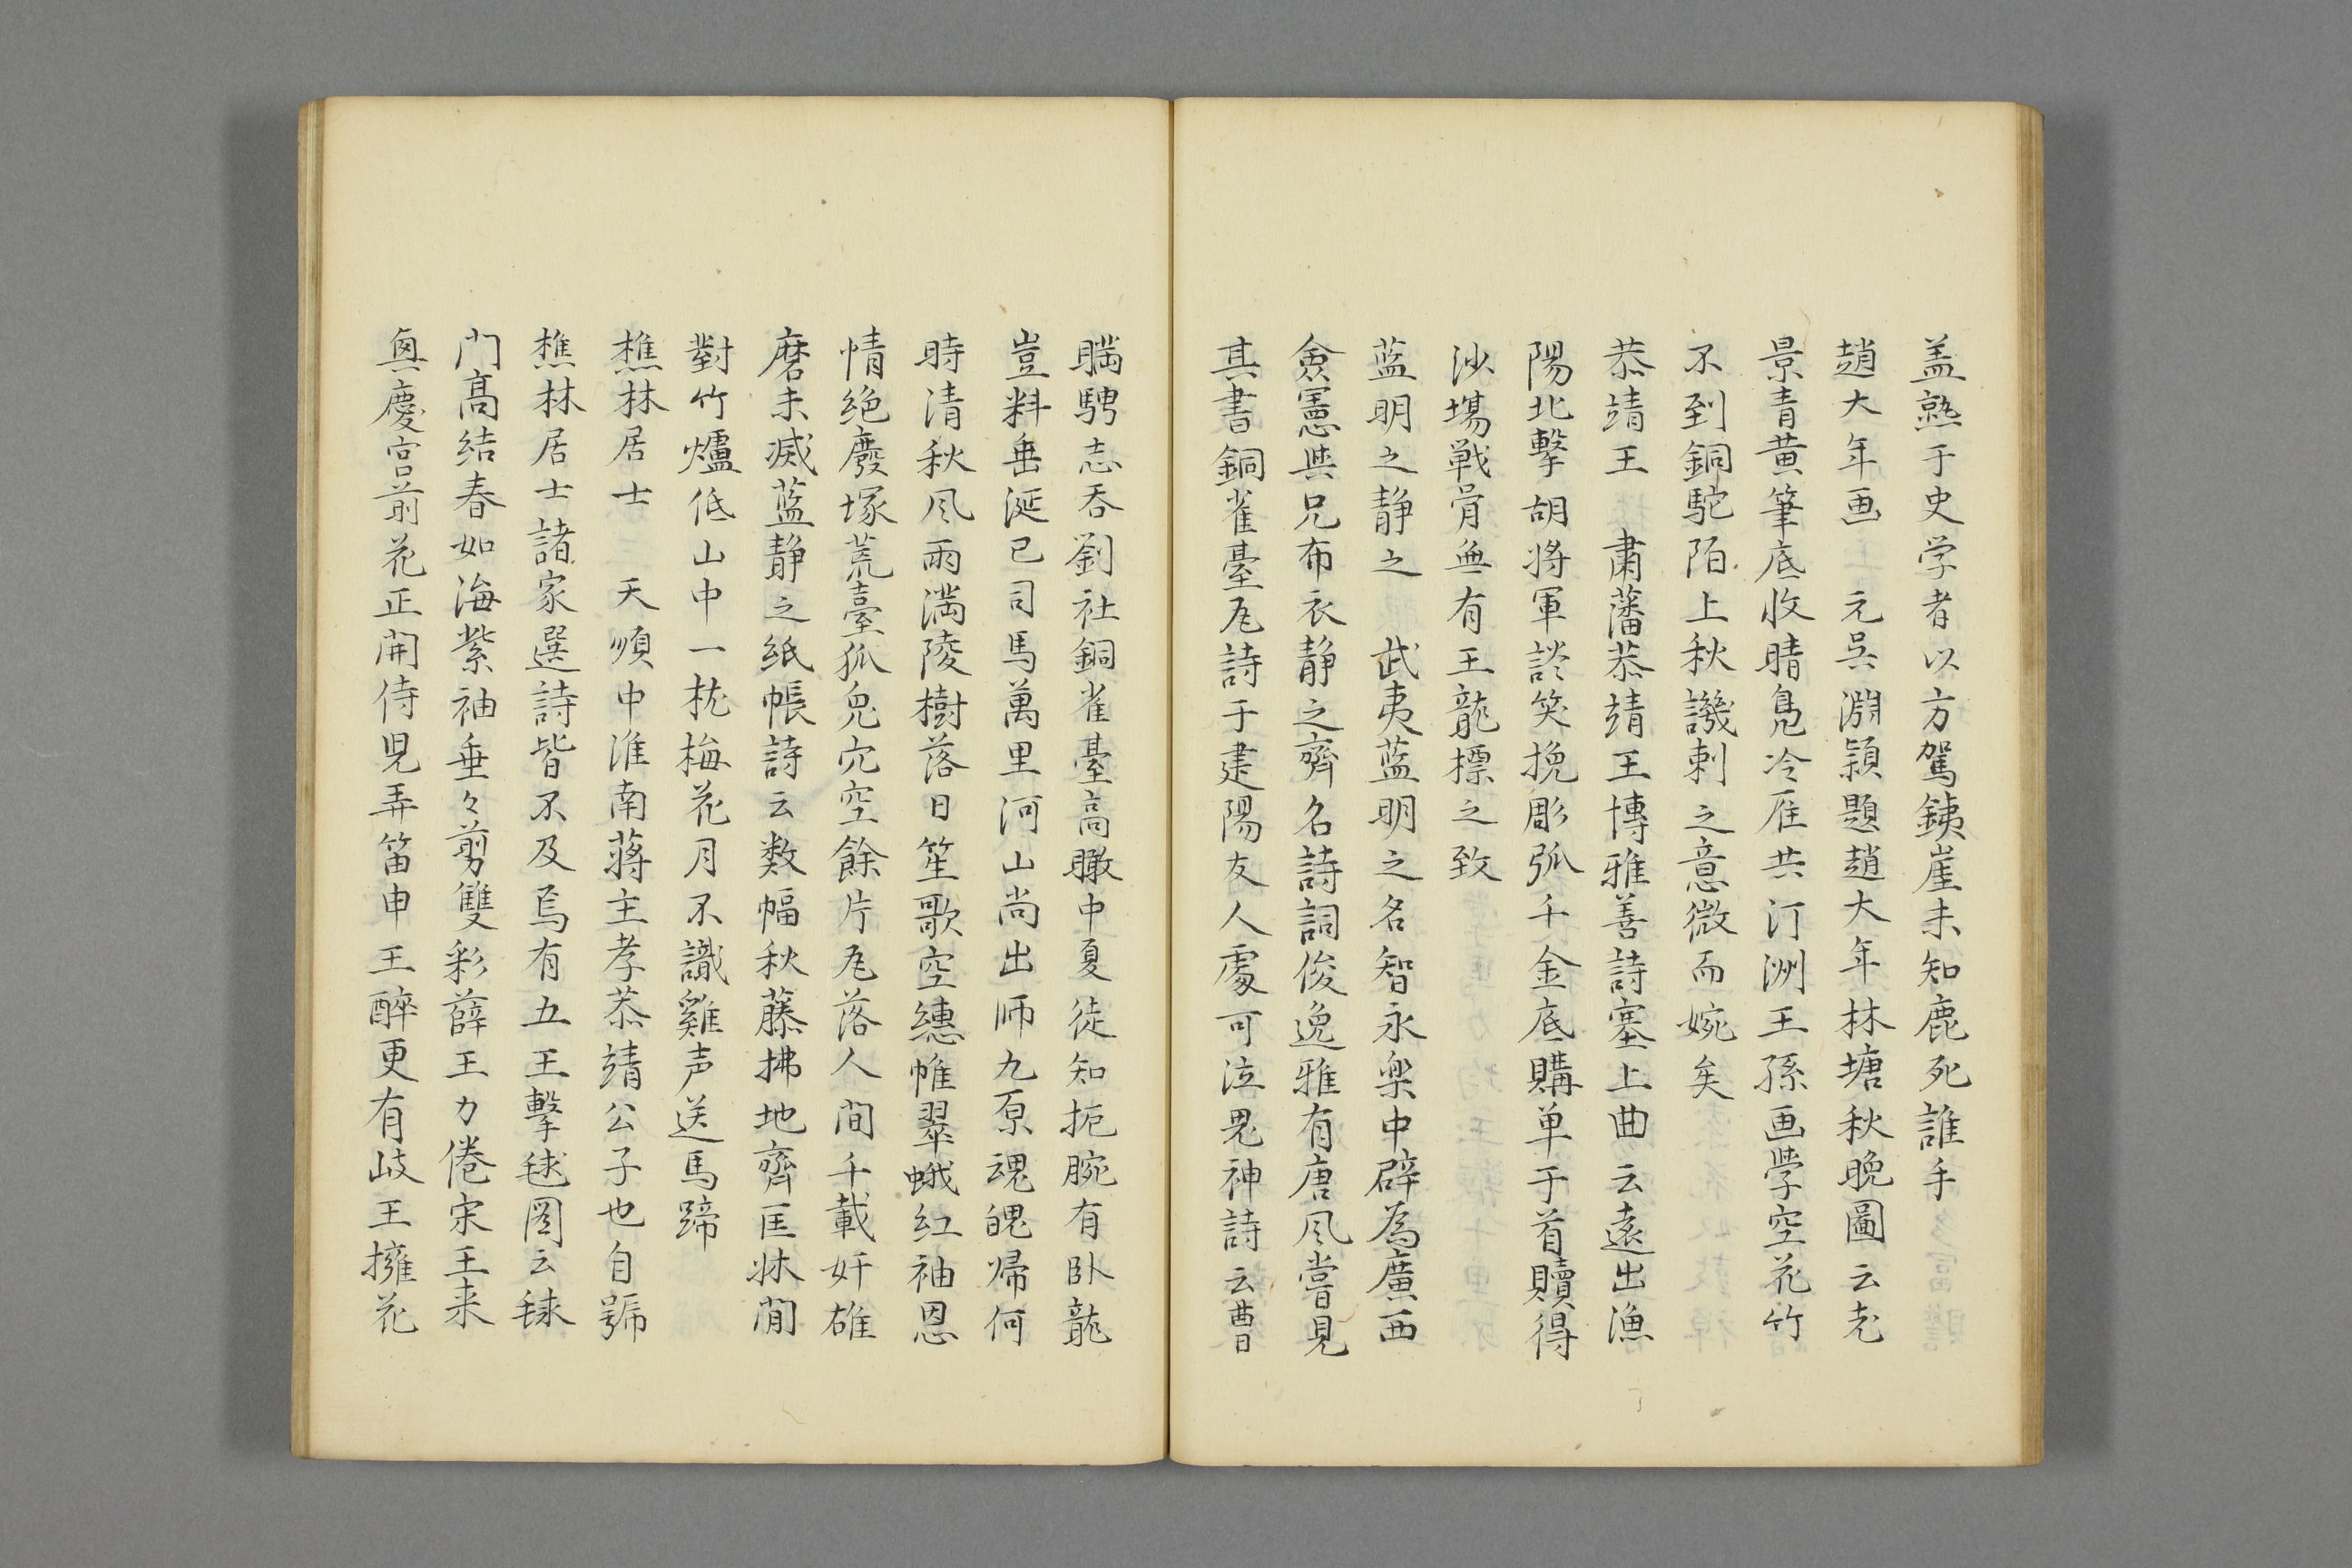 盖熟于史学者以方駕銕崖未知鹿死誰手
趙大年画　元呉淵穎題趙大年林塘秋晚圖云老
景青黄筆底收晴鳧冷雁共汀洲王孫画學空花竹
不到銅駝陌上秋譏刺之意微而婉矣
恭靖王　肅藩恭靖王博雅善詩塞上曲云遠出漁
陽北擊胡將軍談笑挽彫弧千金底購单于首贖得
沙塲戰骨無有王龍標之致
蓝明之静之　武夷蓝明之名智永楽中辟為廣西
僉憲與兄布衣静之齊名詩詞俊逸雅有唐风嘗見
其書銅雀臺瓦詩于建陽友人處可泣鬼神詩云曹
瞞騁志吞劉社銅雀臺高瞰中夏徒知扼腕有卧龍
豈料垂涎已司馬萬里河山尚出师九原魂魄歸何
時清秋风雨满陵樹落日笙歌空繐帷翠蛾红袖恩
情绝廢塚荒臺狐兔穴空餘片瓦落人間千載奸雄
磨未滅蓝静之紙帳詩云数幅秋藤拂地齊匡牀閒
對竹爐低山中一枕梅花月不識雞声送馬蹄
樵林居士　天順中淮南蔣主孝恭靖公子也自號
樵林居士諸家選詩皆不及焉有五王擊毬圖云毬
门髙结春如海紫袖垂々剪雙彩薛王力倦宋王来
興慶宫前花正開侍児弄笛申王醉更有岐王擁花